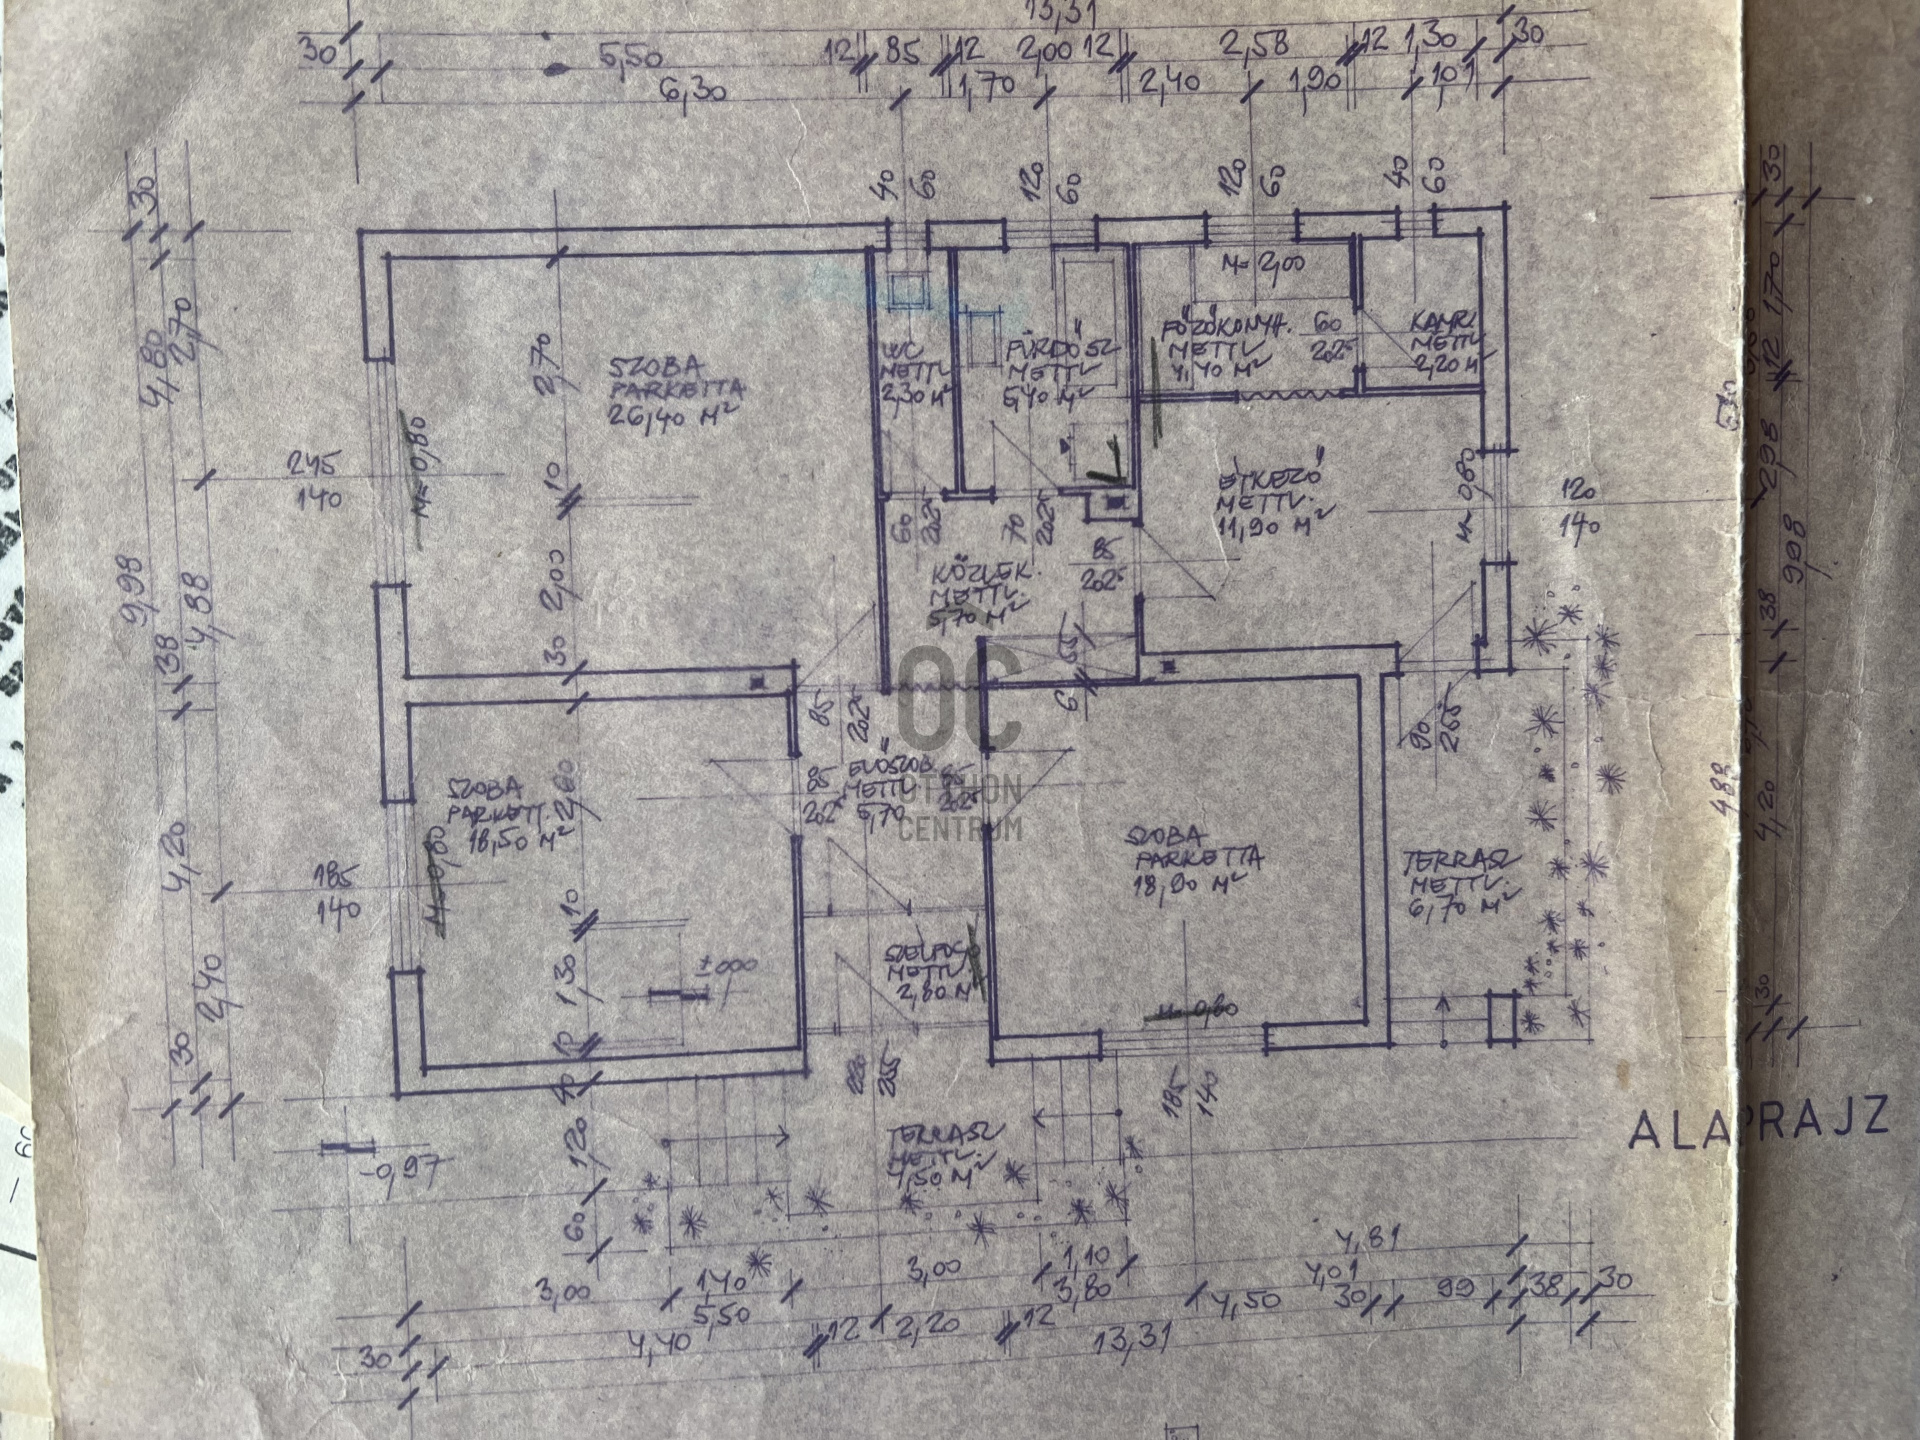 13,31
30 5,50 12 85 12 2,00 12 2,58 12 1,30 30
6,30 1,70 2,40 1,90 1,01
40 60 120 60 120 60 40 60
30
4,80
2,70
M=2,00
SZOBA
PARKETTA
26,40 M²
WC
METTL
2,30 M²
FÜRDŐSZ
METTL
5,40 M²
FŐZŐKONYH.
METTL
4,40 M²
60
202⁵
KAMR
METTL
2,20 M
2,70
10
2,00
30
245
140
M=0,80
ÉTKEZŐ
METTL.
11,90 M²
M=0,80
120
140
60
202⁵
70
202⁵
85
202⁵
KÖZLEK.
METTL.
5,70 M²
55
6
9,98
38
4,88
85
202⁵
90
255
OC
OTTHON
CENTRUM
SZOBA
PARKETT.
18,50 M²
2,60
85
202⁵
ELŐSZOB
METTL
6,70
SZOBA
PARKETTA
18,90 M²
TERRASZ
METTL.
6,70 M²
4,20
185
140
M=0,80
10
1,30
±000
SZÉLFOG
METTL.
2,80 M
M=0,80
2,40
30
10
40
1,20
60
255
185
140
-0,97
TERRASZ
METTL.
4,50 M²
30
1,70
12
2,98
9,98
38
4,88
4,20
30
ALAPRAJZ
4,81
3,00 1,40 3,00 1,10 4,01
5,50 3,80 4,50 30 99 38 30
30 4,40 12 2,20 12
13,31